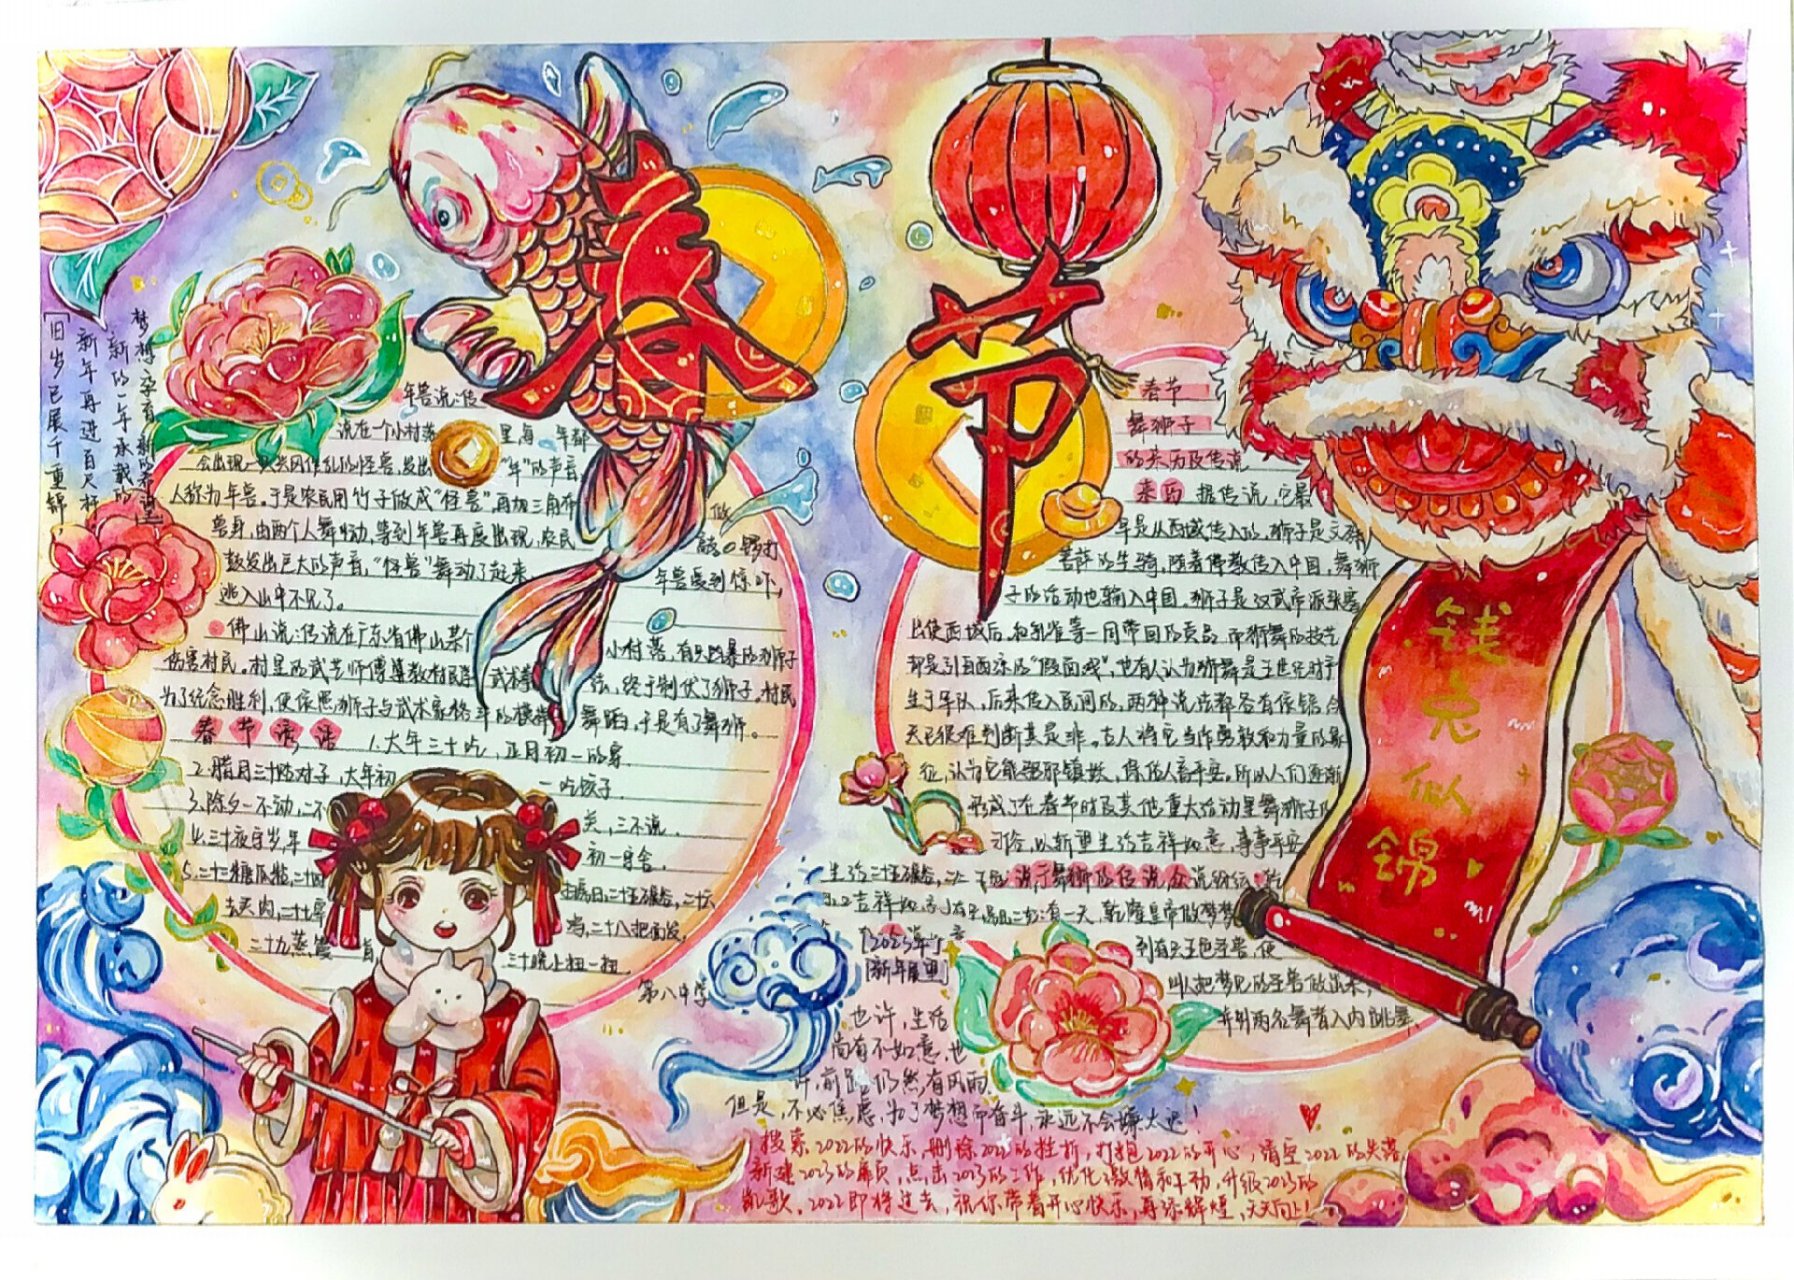 春节
旧岁已展千重锦，
新年再进百尺杆
新的一年承载的
梦想孕育新的希望
年兽说：传
说在一个小村落里，每年都
会出现一只 的怪兽，发出“年”的声音
人称为年兽。于是农民用竹子做成“怪兽”再加三角布
兽身，由两个人舞动，等到年兽再度出现，农民 敲 锣打
鼓发出巨大的声音，“怪兽”舞动了起来 年兽受到惊吓，
逃入山中不见了。
佛山说：传流在广东省佛山某个小村落，有只 的狮子
伤害村民。村里的武艺师傅 教村民 武术 终于制伏了狮子。村民
为了纪念胜利，便依照狮子与武术家格斗的模样舞蹈，于是有了舞狮。
春节谚语 1.大年三十吃，正月初一的穿
2.腊月三十贴对子，大年初一吃饺子
3.除夕一不动，二不 ，三不说。
4.三十夜守岁，年初一 舍。
5.二十三糖瓜粘，二十四 扫房日，二十五 ，二十六
去买肉，二十七宰鸡，二十八把面发，
二十九蒸馒首，三十晚上扭一扭。
第八中学
春节
舞狮子
的来历及传说
来历 据传说，它最
早是从西域传入的，狮子是文殊
菩萨的坐骑，随着佛教传入中国，舞狮
子的活动也输入中国。狮子是汉武帝派张骞
出使西域后，和孔雀等一同带回的贡品。而狮舞的技艺
却是引自西凉的“假面戏”，也有人认为狮舞是五世纪时产
生于军队，后来传入民间的。两种说法都各有依据，今
天已很难判断其是非。古人将它当作勇敢和力量的象
征，认为它能驱邪镇妖、保佑人畜平安。所以人们逐渐
形成了在春节时及其他重大活动里舞狮子的
习俗，以祈望生活吉祥如意，事事平安
于舞狮的传说众说纷纭
有一天，乾隆皇帝做梦梦
到有只五色圣兽，便
叫人把梦见的圣兽做出来，
并引两名舞者入内跳舞。
钱
似
锦
2023年
新年展望
也许，生活
尚有不如意，也
许，前 仍然有风雨，
但是，不必焦虑，为了梦想而奋斗，永远不会嫌太迟！
搜索2022的快乐，删除2022的挫折，打包2022的开心，清空2022的失落，
新建2023的扉页，点击2023的工作，优化激情和 动，升级2023的
凯歌。2022即将过去，祝你带着开心快乐，再添辉煌，天天向上！